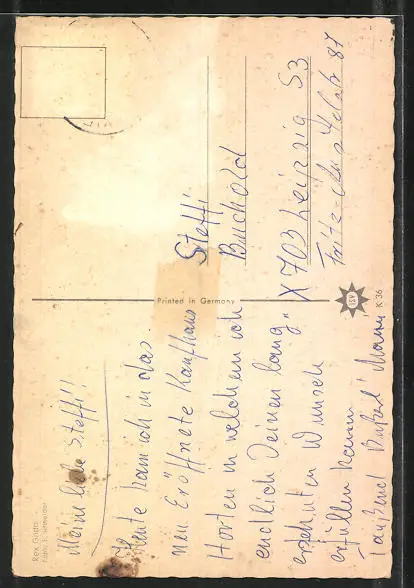 Rex Gildo
Foto: S. Schneider
Meine liebe Steffi!
Heute kam ich in das
neu Eröffnete Kaufhaus
Horten in welchem ich
endlich Deinen lang
ersehnten Wunsch
erfüllen kann
Tausend Bussel Mami
Printed in Germany
Steffi
Buchold
X 703 Leipzig S3
87
ISV
K 36